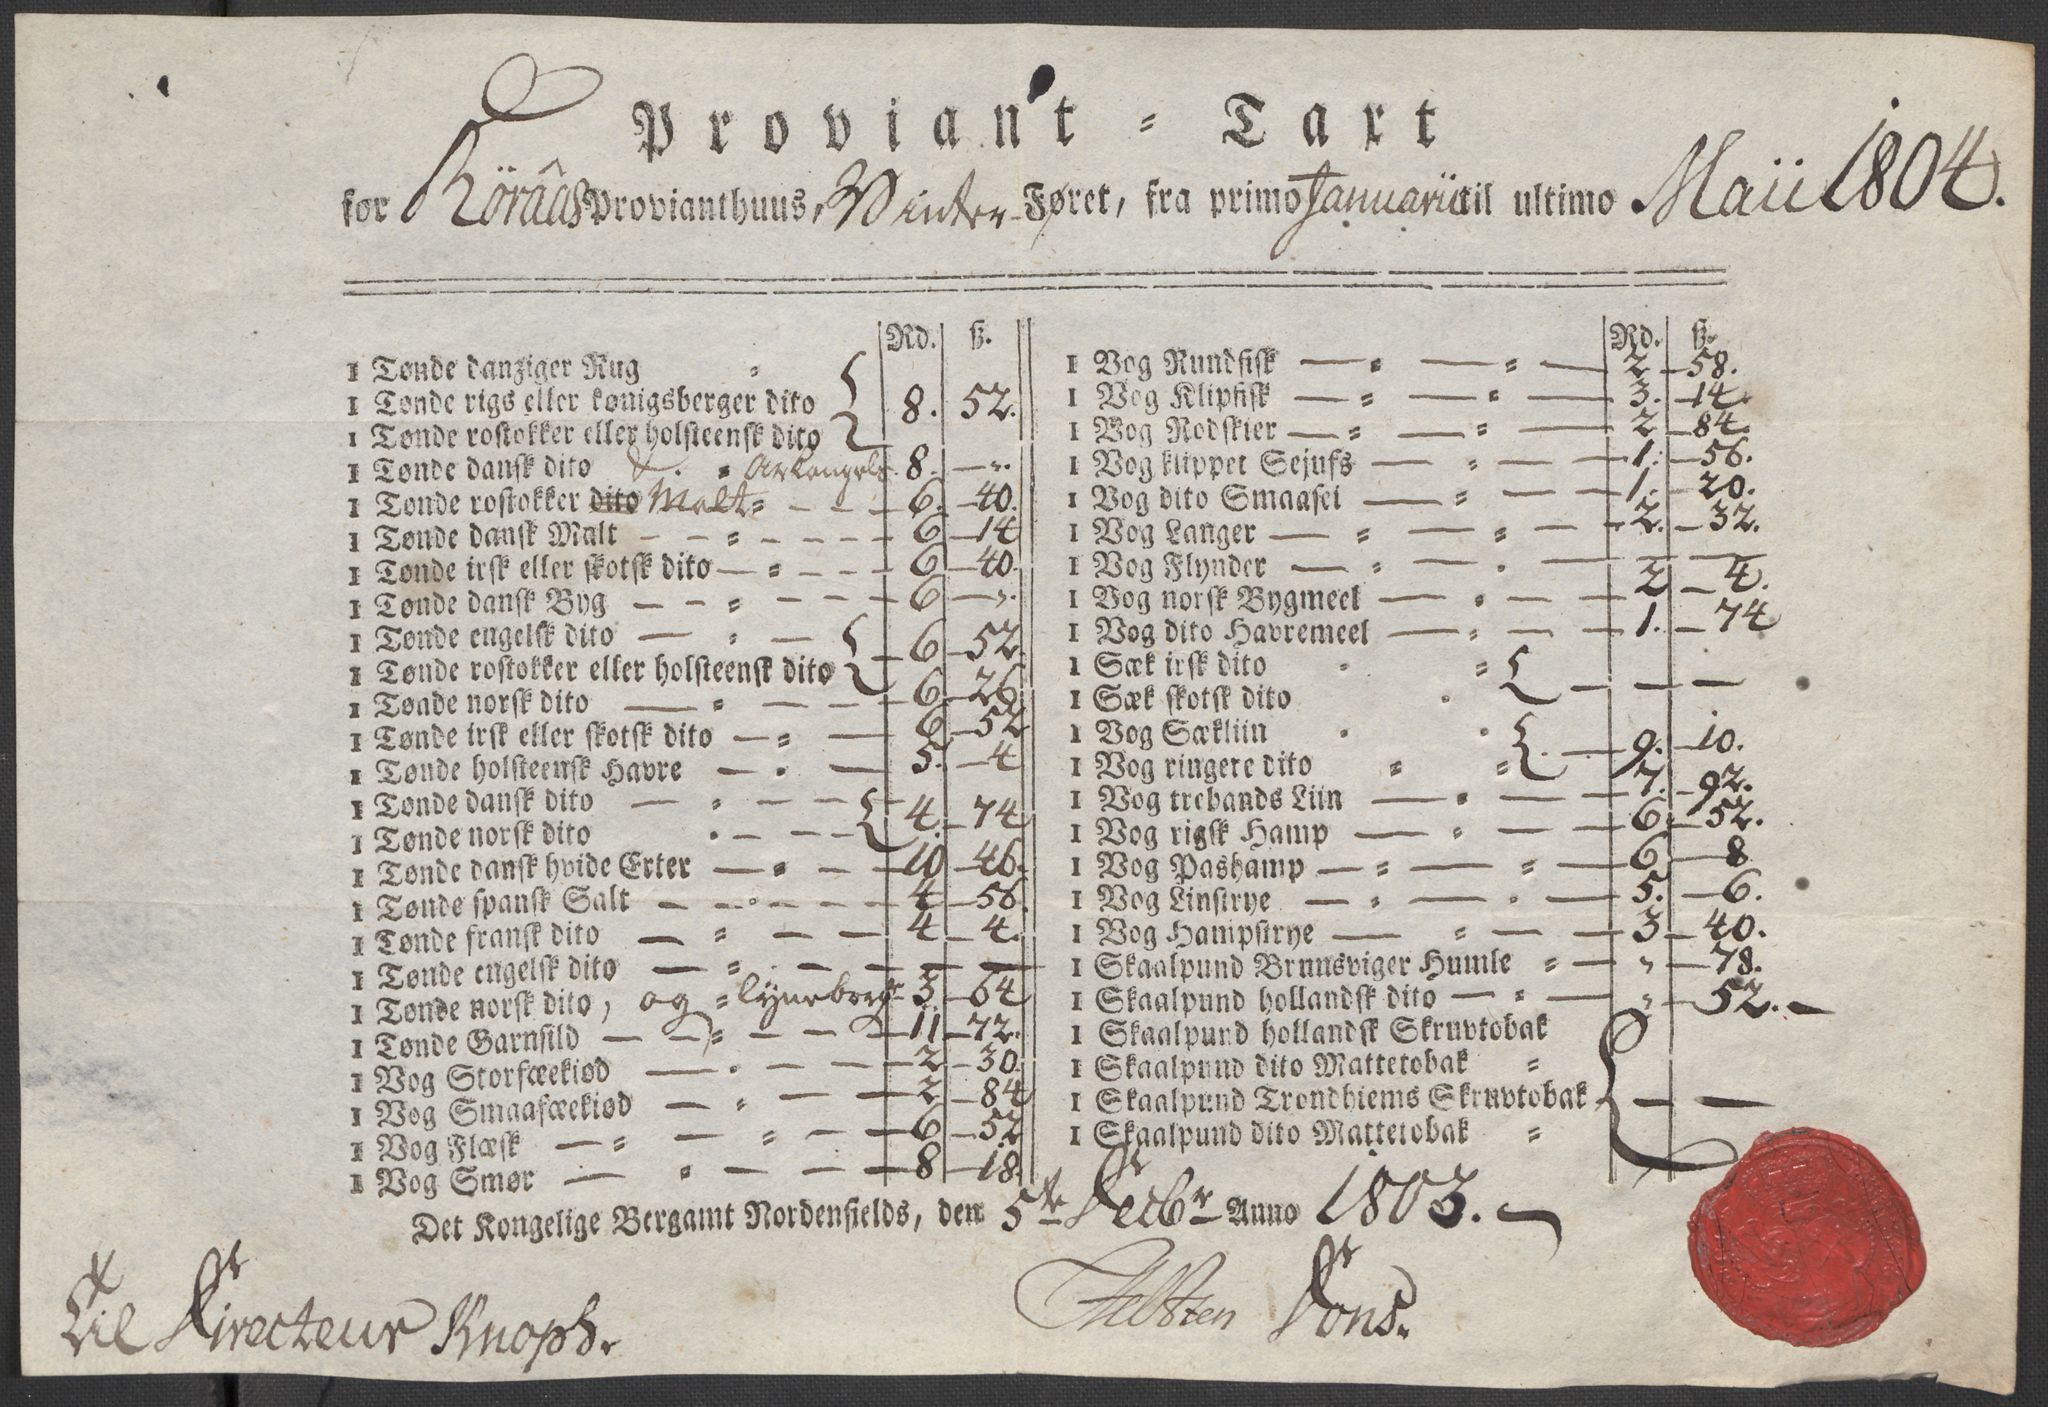 Proviant-Taxt
for Röraas Provianthuus, Winter Føret, fra primo Januarii til ultimo Maii 1804.
Rd. ß.
1 Tønde danziger Rug
1 Tønde rigs eller kønigsberger dito 8. 52.
1 Tønde rostokker eller holsteensk dito
1 Tønde dansk dito & Arkangels 8. — „.
1 Tønde rostokker dito Malt 6. 40.
1 Tønde dansk Malt 6 14
1 Tønde irsk eller skotsk dito 6 40.
1 Tønde dansk Byg 6 „.
1 Tønde engelsk dito
1 Tønde rostokker eller holsteensk dito 6 52.
1 Tønde norsk dito 6 26
1 Tønde irsk eller skotsk dito 6 52
1 Tønde holsteensk Havre 5. 4
1 Tønde dansk dito
1 Tønde norsk dito 4. 74
1 Tønde dansk hvide Erter 10 46.
1 Tønde spansk Salt 4 56.
1 Tønde fransk dito 4 4.
1 Tønde engelsk dito — —
1 Tønde norsk dito, og lyneborgr 3 64
1 Tønde Garnsild 11 72.
1 Vog Storfæekiød 2 30.
1 Vog Smaafæekiød 2 84
1 Vog Flæsk 6 52
1 Vog Smør 8 18
Rd. ß.
1 Vog Rundfisk 2 58.
1 Vog Klipfisk 3. 14
1 Vog Rodskier 2 84.
1 Vog klippet Sejufs 1. 56.
1 Vog dito Smaasei 1. 20.
1 Vog Langer 2. 32.
1 Vog Flynder — —
1 Vog norsk Bygmeel 2 4.
1 Vog dito Havremeel 1. 74
1 Sæk irsk dito
1 Sæk skotsk dito — —
1 Vog Sækliin
1 Vog ringere dito 9. 10.
1 Vog trebands Liin 7. 92.
1 Vog rigsk Hamp 6. 52.
1 Vog Pashamp 6 8
1 Vog Linstrye 5. 6.
1 Vog Hampstrye 3 40.
1 Skaalpund Brunsviger Humle „ 78.
1 Skaalpund hollandsk dito „ 52.
1 Skaalpund hollandsk Skruvtobak
1 Skaalpund dito Mattetobak
1 Skaalpund Trondhiems Skruvtobak — —
1 Skaalpund dito Mattetobak
Det Kongelige Bergamt Nordenfields, den 5te Decbr Anno 1803.
Til Directeur Knoph.